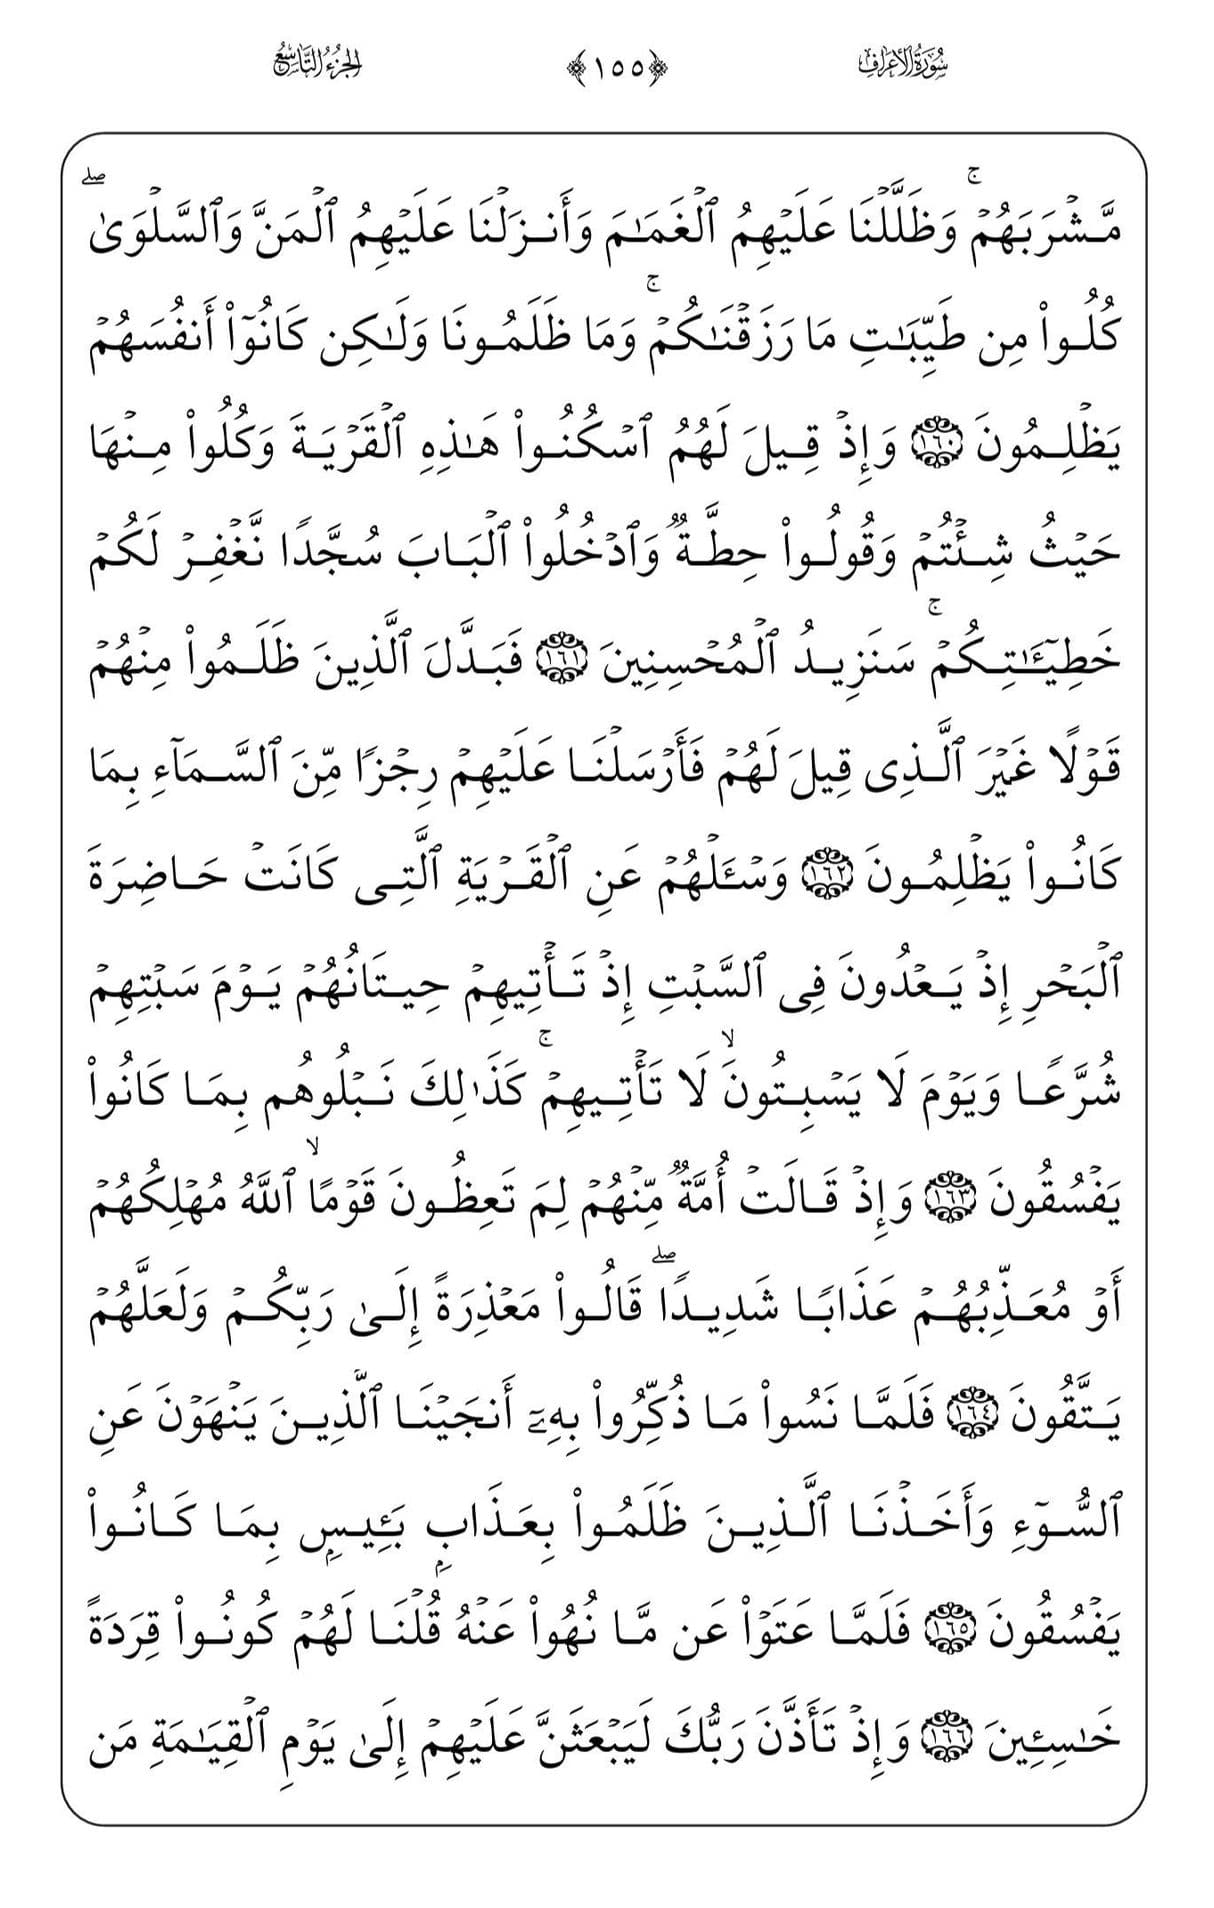 سُورَةُ الأَعْرَافِ ١٥٥ الجُزْءُ التَّاسِعُ
مَّشۡرَبَهُمۡۚ وَظَلَّلۡنَا عَلَيۡهِمُ ٱلۡغَمَٰمَ وَأَنزَلۡنَا عَلَيۡهِمُ ٱلۡمَنَّ وَٱلسَّلۡوَىٰۖ
كُلُواْ مِن طَيِّبَٰتِ مَا رَزَقۡنَٰكُمۡۚ وَمَا ظَلَمُونَا وَلَٰكِن كَانُوٓاْ أَنفُسَهُمۡ
يَظۡلِمُونَ ١٦٠ وَإِذۡ قِيلَ لَهُمُ ٱسۡكُنُواْ هَٰذِهِ ٱلۡقَرۡيَةَ وَكُلُواْ مِنۡهَا
حَيۡثُ شِئۡتُمۡ وَقُولُواْ حِطَّةٞ وَٱدۡخُلُواْ ٱلۡبَابَ سُجَّدٗا نَّغۡفِرۡ لَكُمۡ
خَطِيٓـَٰٔتِكُمۡۚ سَنَزِيدُ ٱلۡمُحۡسِنِينَ ١٦١ فَبَدَّلَ ٱلَّذِينَ ظَلَمُواْ مِنۡهُمۡ
قَوۡلًا غَيۡرَ ٱلَّذِي قِيلَ لَهُمۡ فَأَرۡسَلۡنَا عَلَيۡهِمۡ رِجۡزٗا مِّنَ ٱلسَّمَآءِ بِمَا
كَانُواْ يَظۡلِمُونَ ١٦٢ وَسۡـَٔلۡهُمۡ عَنِ ٱلۡقَرۡيَةِ ٱلَّتِي كَانَتۡ حَاضِرَةَ
ٱلۡبَحۡرِ إِذۡ يَعۡدُونَ فِي ٱلسَّبۡتِ إِذۡ تَأۡتِيهِمۡ حِيتَانُهُمۡ يَوۡمَ سَبۡتِهِمۡ
شُرَّعٗا وَيَوۡمَ لَا يَسۡبِتُونَۙ لَا تَأۡتِيهِمۡۚ كَذَٰلِكَ نَبۡلُوهُم بِمَا كَانُواْ
يَفۡسُقُونَ ١٦٣ وَإِذۡ قَالَتۡ أُمَّةٞ مِّنۡهُمۡ لِمَ تَعِظُونَ قَوۡمًاۙ ٱللَّهُ مُهۡلِكُهُمۡ
أَوۡ مُعَذِّبُهُمۡ عَذَابٗا شَدِيدٗاۖ قَالُواْ مَعۡذِرَةً إِلَىٰ رَبِّكُمۡ وَلَعَلَّهُمۡ
يَتَّقُونَ ١٦٤ فَلَمَّا نَسُواْ مَا ذُكِّرُواْ بِهِۦٓ أَنجَيۡنَا ٱلَّذِينَ يَنۡهَوۡنَ عَنِ
ٱلسُّوٓءِ وَأَخَذۡنَا ٱلَّذِينَ ظَلَمُواْ بِعَذَابِۭ بَـِٔيسِۭ بِمَا كَانُواْ
يَفۡسُقُونَ ١٦٥ فَلَمَّا عَتَوۡاْ عَن مَّا نُهُواْ عَنۡهُ قُلۡنَا لَهُمۡ كُونُواْ قِرَدَةً
خَٰسِـِٔينَ ١٦٦ وَإِذۡ تَأَذَّنَ رَبُّكَ لَيَبۡعَثَنَّ عَلَيۡهِمۡ إِلَىٰ يَوۡمِ ٱلۡقِيَٰمَةِ مَن